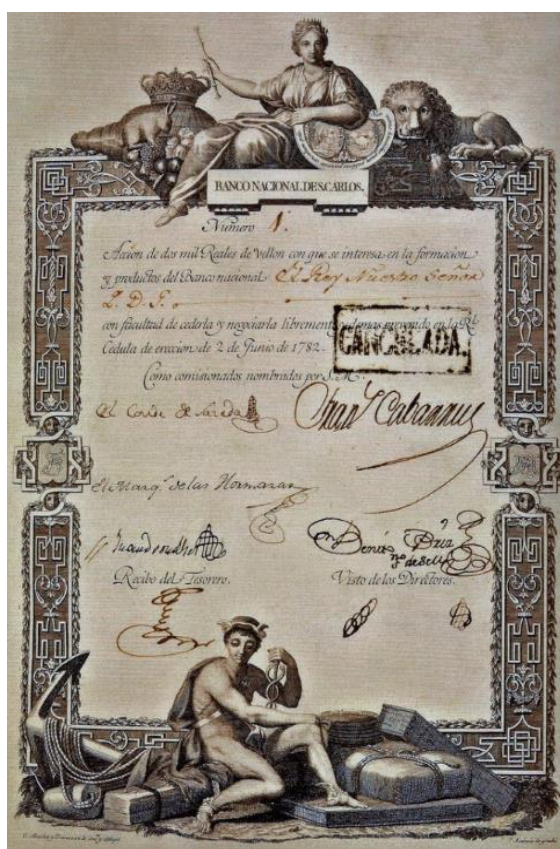 BANCO NACIONAL DE S. CARLOS.
Número 1.
Acción de dos mil Reales de Vellon con que se interesa en la formacion
y productos del Banco nacional El Rey Nuestro Señor
con facultad de cederla y negociarla librementе y demas prevenido en la Rl.
Cedula de ereccion de 2 de Junio de 1782.
CANCELADA.
Como comisionados nombrados por S. M.
El Conde de
Cabarrus
El Marqs. de las Hormazas
Recibo del Tesorero.
Visto de los Directores.